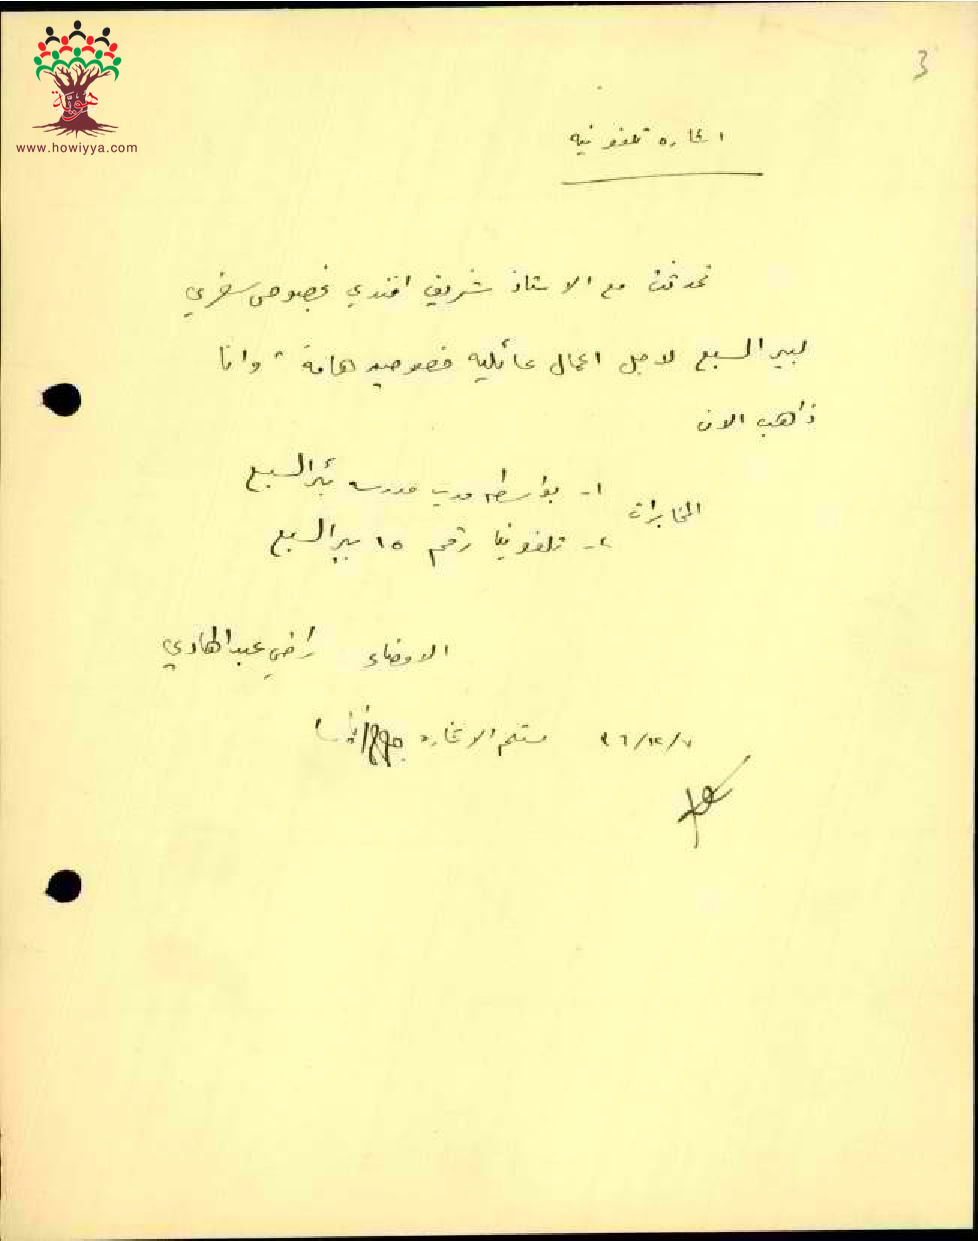 هوية
www.howiyya.com
3
اشاره تلفونيه
تحدثت مع الاستاذ شريف افندي بخصوص سفري
لبير السبع لاجل اعمال عائليه خصوصيه هامة وانا
ذاهب الان
المخابرات
١- بواسطه مدير مدرسه بئر السبع
٢- تلفونيا رقم ١٥ بير السبع
الامضاء راضي عبد الهادي
٣٦/١٢/٧ مستلم الاشاره